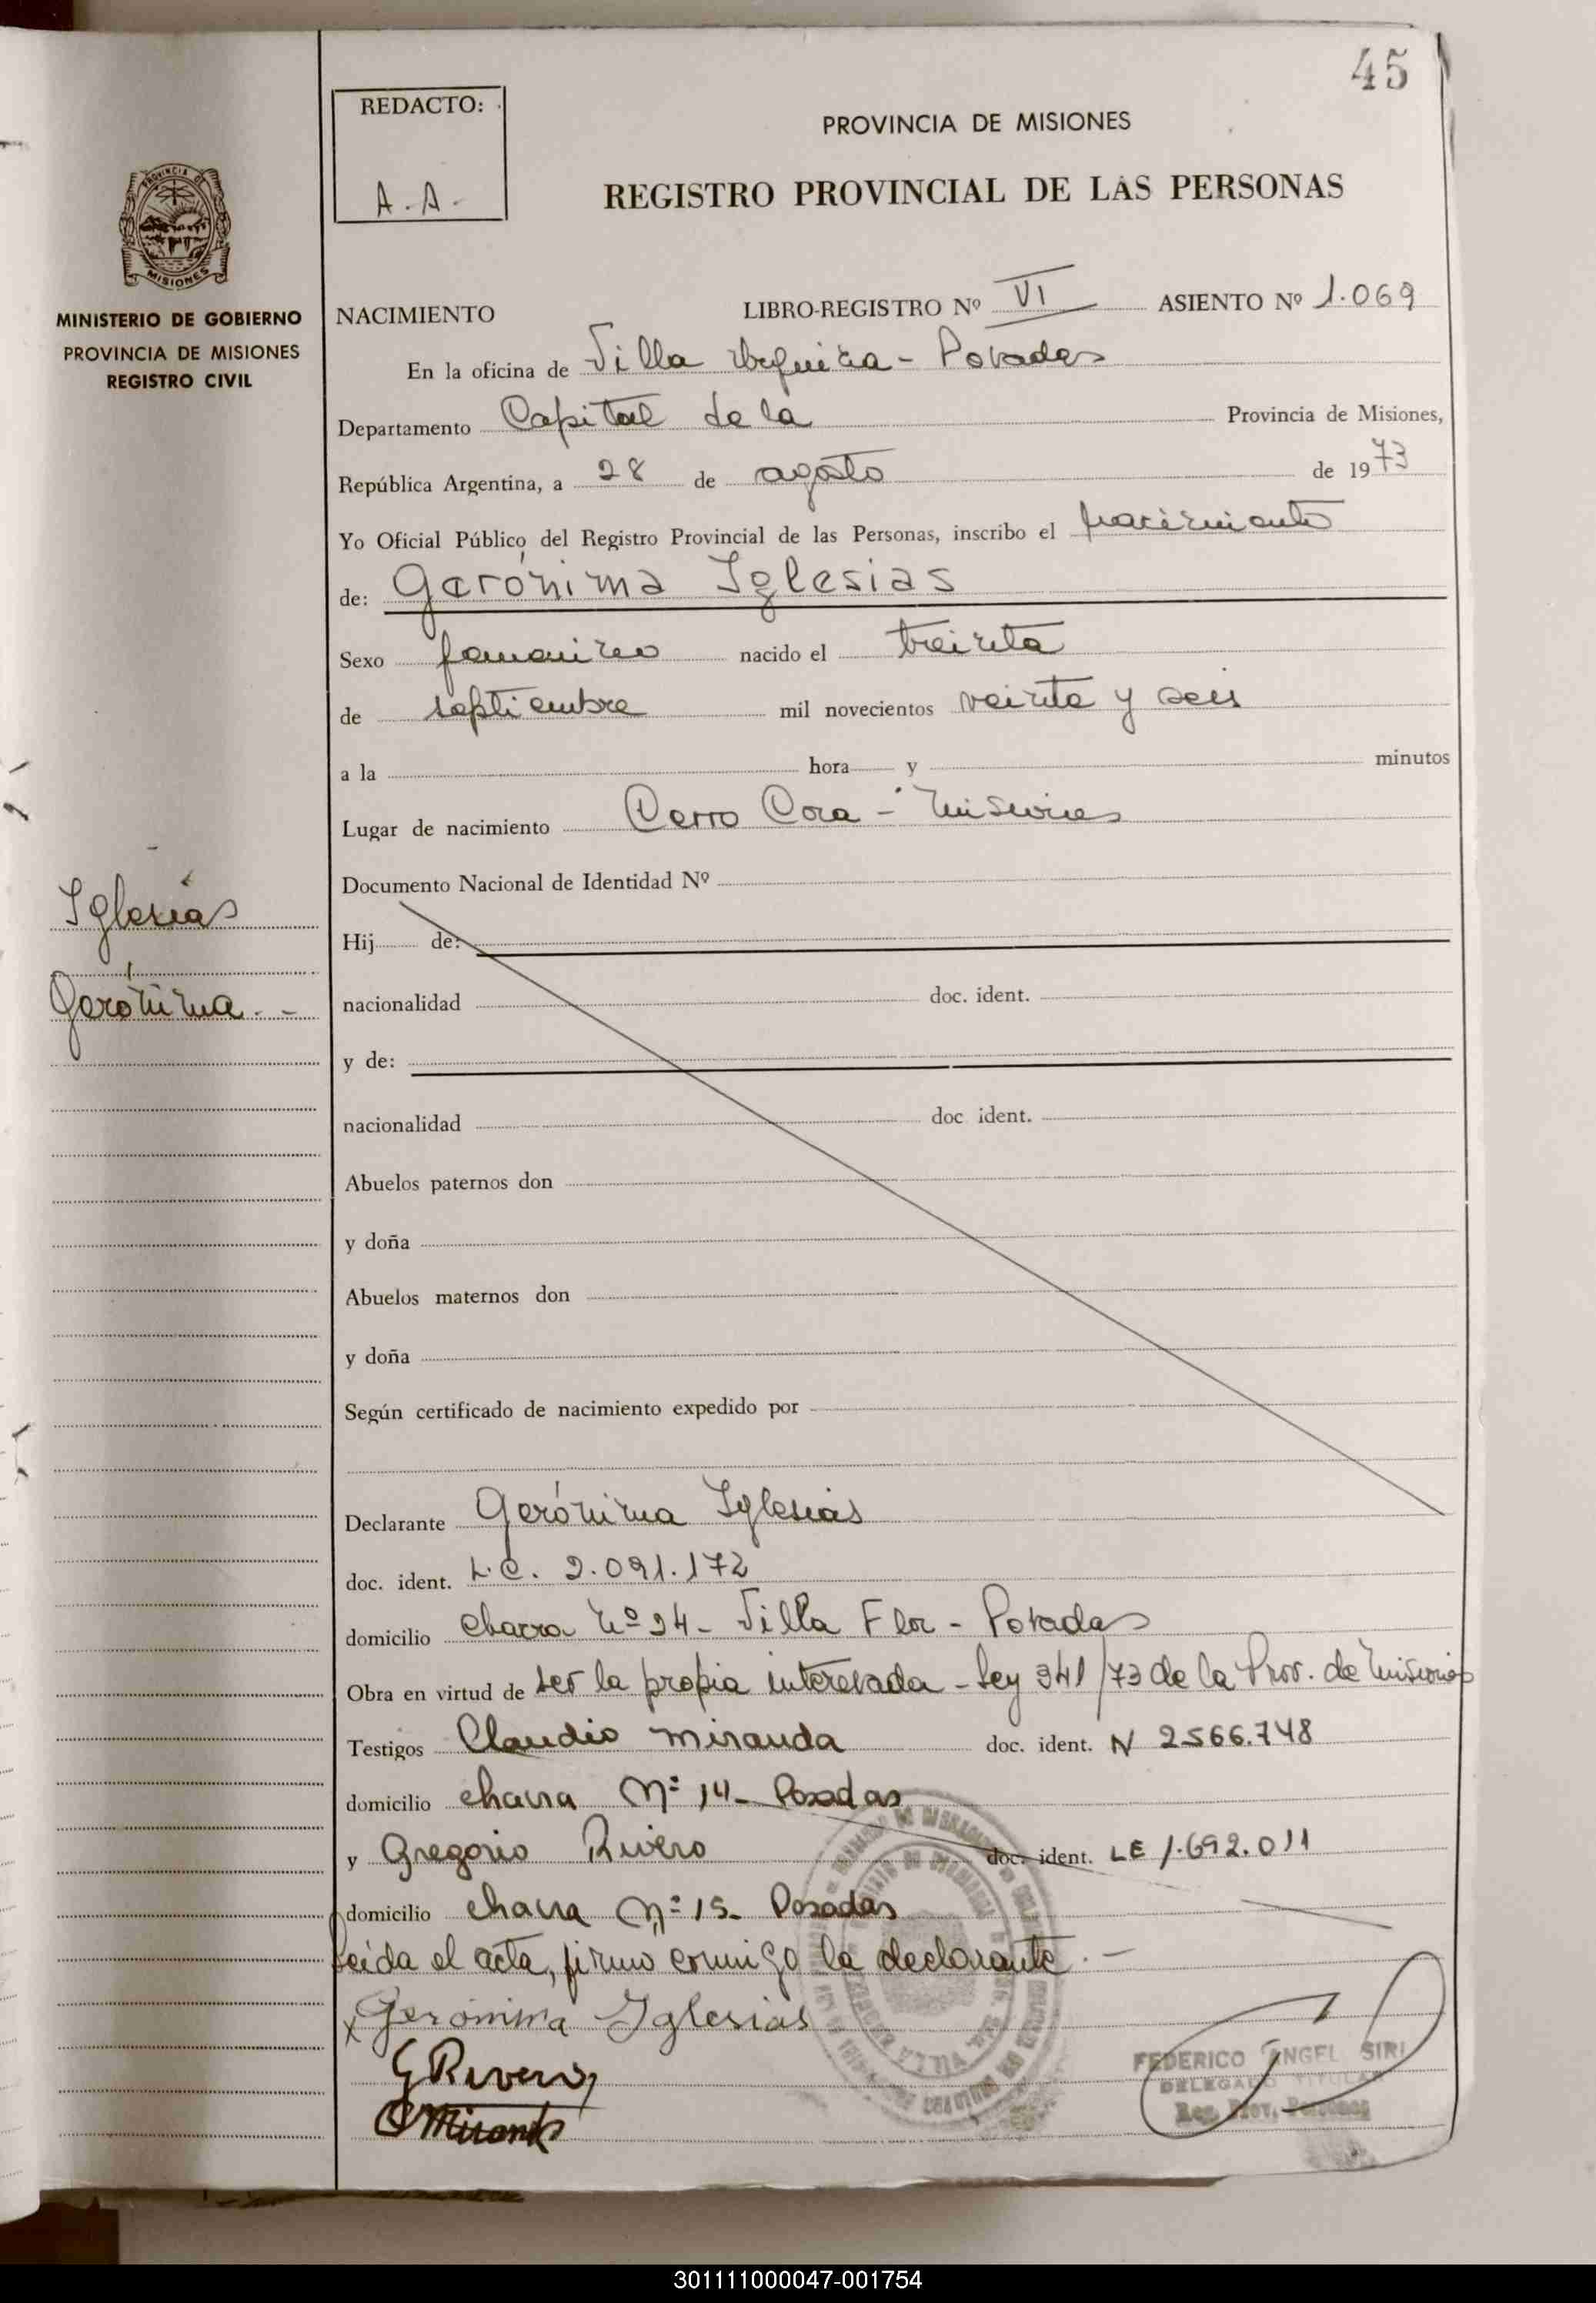 45
REDACTO:
A.A.-
PROVINCIA DE MISIONES
REGISTRO PROVINCIAL DE LAS PERSONAS
MINISTERIO DE GOBIERNO
PROVINCIA DE MISIONES
REGISTRO CIVIL
NACIMIENTO LIBRO-REGISTRO Nº VI ASIENTO Nº 1.069
En la oficina de Villa Urquiza - Posadas
Departamento Capital de la Provincia de Misiones,
República Argentina, a 28 de agosto de 1973
Yo Oficial Público del Registro Provincial de las Personas, inscribo el nacimiento
de: Gerónima Iglesias
Sexo femenino nacido el treinta
de septiembre mil novecientos veinte y seis
a la hora y minutos
Lugar de nacimiento Cerro Cora - Misiones
Documento Nacional de Identidad Nº
Iglesias
Gerónima.-
Hij de:
nacionalidad doc. ident.
y de:
nacionalidad doc ident.
Abuelos paternos don
y doña
Abuelos maternos don
y doña
Según certificado de nacimiento expedido por
Declarante Gerónima Iglesias
doc. ident. L.C. 2.091.172
domicilio chacra Nº 24 - Villa Flor - Posadas
Obra en virtud de ser la propia interesada - Ley 341/73 de la Prov. de Misiones
Testigos Claudio Miranda doc. ident. N 2566.748
domicilio chacra Nº 14 - Posadas
y Gregorio Rivero doc. ident. LE 1.692.011
domicilio chacra Nº 15 - Posadas
Leida el acta, firmo conmigo la declarante.-
x Gerónima Iglesias
G Rivero
C Miranda
FEDERICO ANGEL SIRI
DELEGADO TITULAR
Reg. Prov. Personas
301111000047-001754